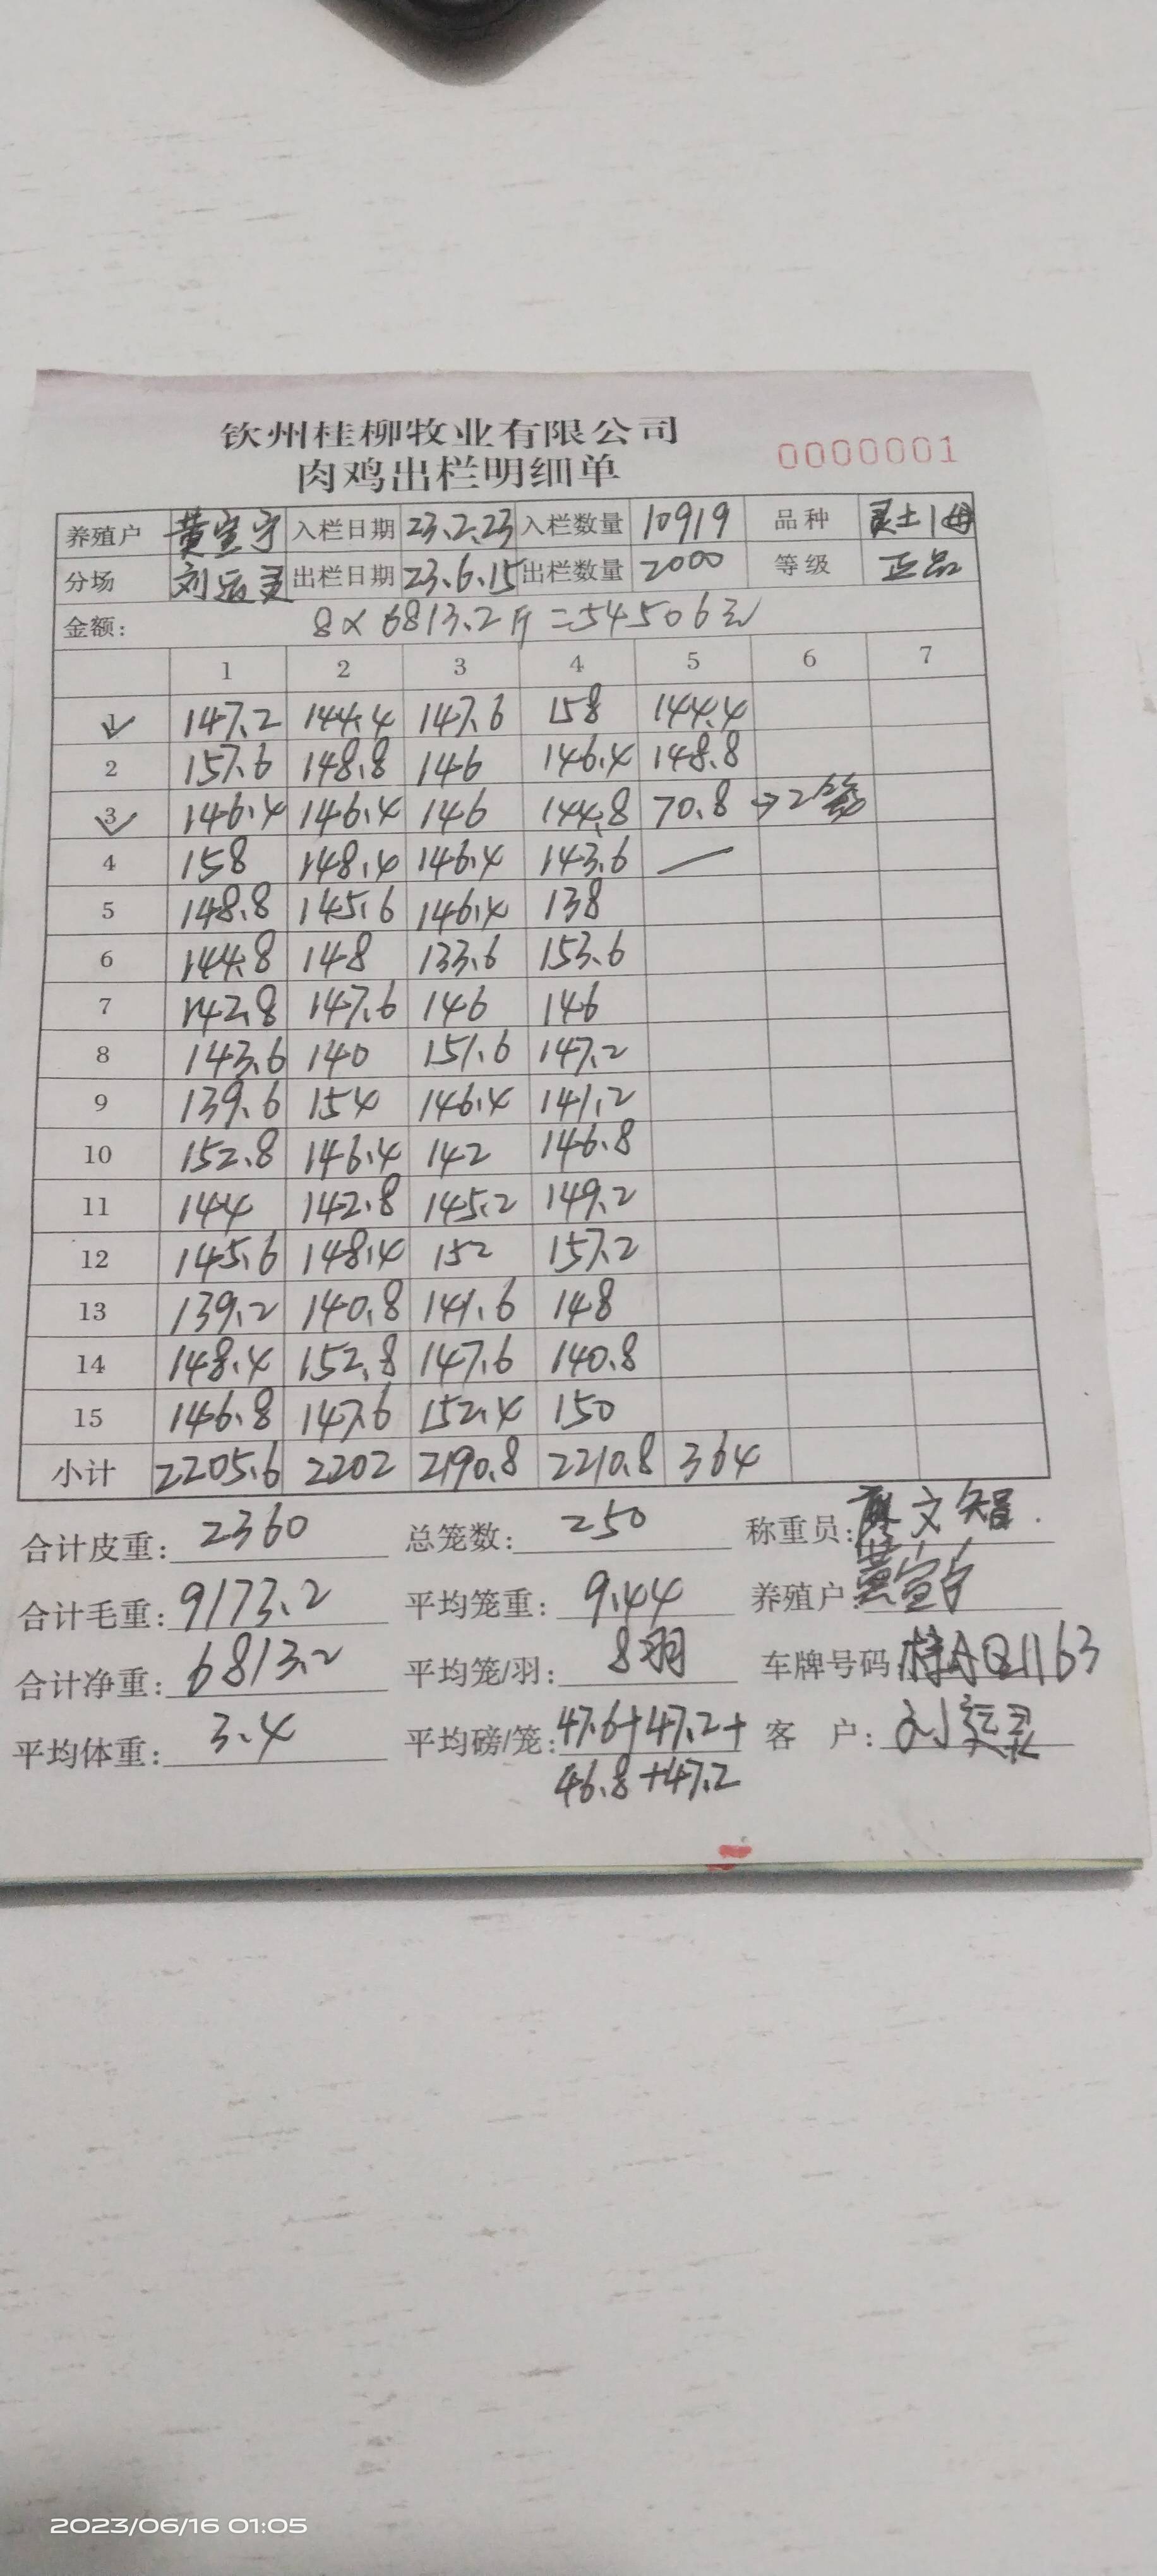 钦州桂柳牧业有限公司
肉鸡出栏明细单 0000001
养殖户 黄宣宁 入栏日期 23.2.23 入栏数量 10919 品种 灵土1母
分场 刘运灵 出栏日期 23.6.15 出栏数量 2000 等级 正品
金额: 8×6813.2斤=54506元
1 2 3 4 5 6 7
1 147.2 144.4 147.6 158 144.4
2 157.6 148.8 146 146.4 148.8
3 146.4 146.4 146 144.8 70.8 →2
4 158 148.4 146.4 143.6 —
5 148.8 145.6 146.4 138
6 144.8 148 133.6 153.6
7 142.8 147.6 146 146
8 143.6 140 151.6 147.2
9 139.6 154 146.4 141.2
10 152.8 146.4 142 146.8
11 144 142.8 145.2 149.2
12 145.6 148.4 152 157.2
13 139.2 140.8 141.6 148
14 148.4 152.8 147.6 140.8
15 146.8 147.6 152.4 150
小计 2205.6 2202 2190.8 2210.8 364
合计皮重: 2360 总笼数: 250 称重员: 文智
合计毛重: 9173.2 平均笼重: 9.44 养殖户 黄宣宁
合计净重: 6813.2 平均笼/羽: 8羽 车牌号码: 桂AQ1163
平均体重: 3.4 平均磅/笼: 47.6+47.2+ 客 户: 刘运灵
46.8+47.2
2023/06/16 01:05